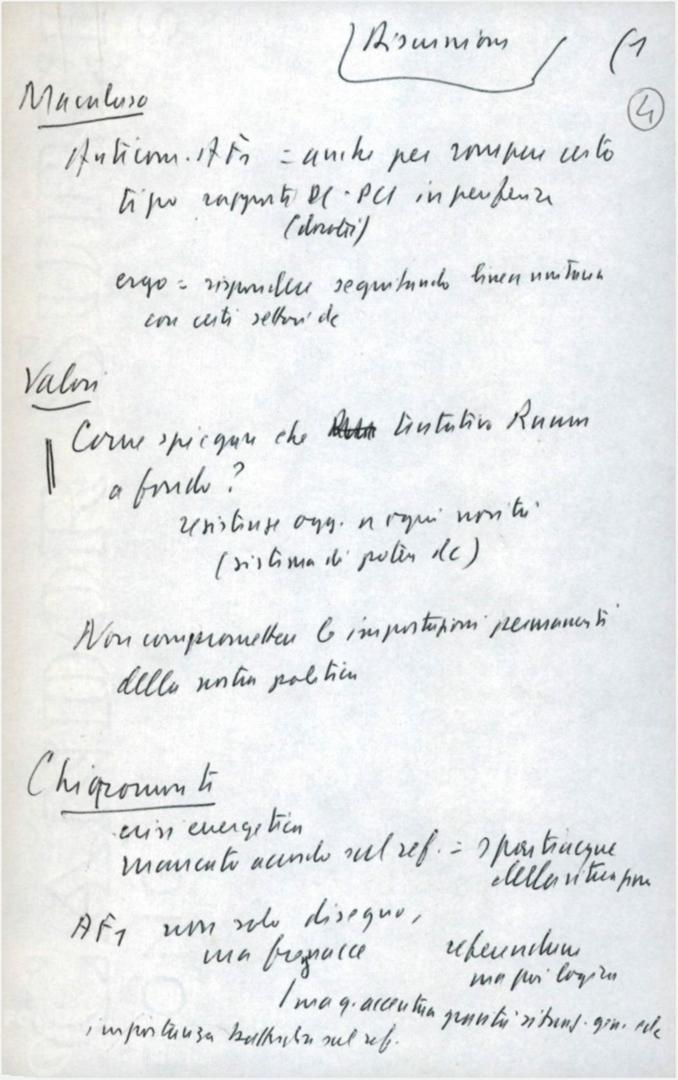 Discussione (1
4
Macaluso
Anticom. AF1 = anche per rompere certo
tipo rapporti DC-PCI in periferia
(dorotei)
ergo = rispondere seguitando linea unitaria
con certi settori dc
Valori
Come spiegare che tentativo Rumor
a fondo?
resistenze ogg. a ogni novità
(sistema di potere dc)
Non compromettere le impostazioni permanenti
della nostra politica
Chiaromonte
crisi energetica
mancato accordo sul ref. = spartiacque
della situazione
AF1 non solo disegno,
ma referendum
ma poi logica
ma q. accentua gravità situaz. gen.
importanza battaglia sul ref.